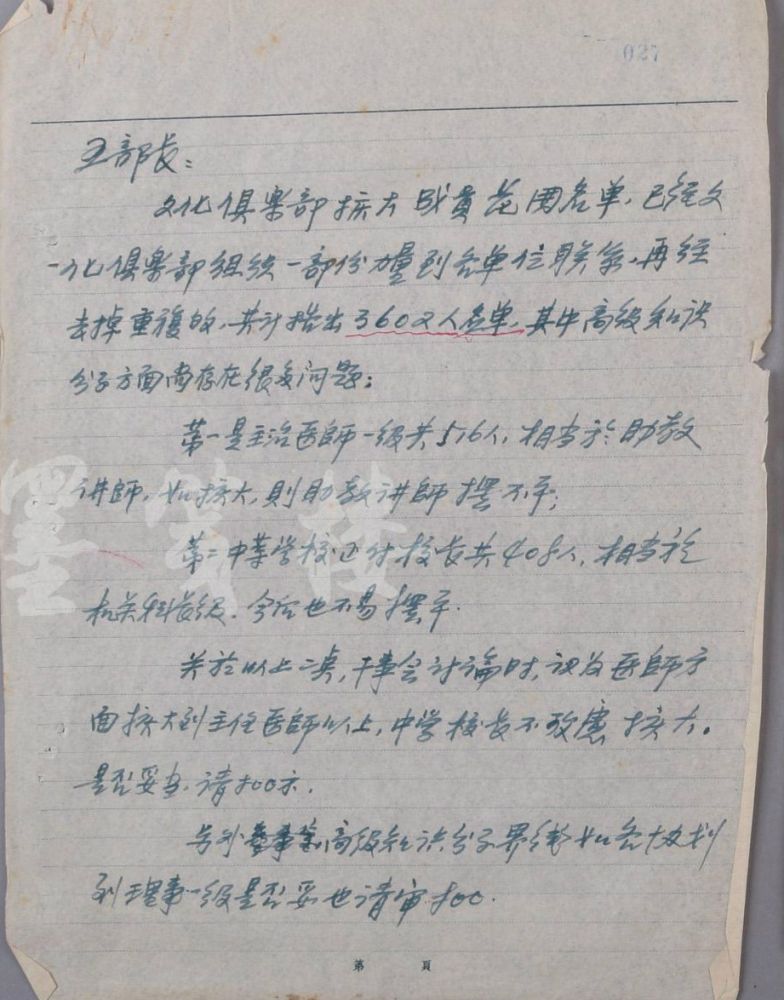 027
王部长：
文化俱楽部扩大成員范围名单，已经文
化俱楽部组织一部份力量到各单位联系，再经
去掉重複的，共计提出3602人名单，其中高级知识
分子方面尚存在很多问题：
第一是主治医師一级共516人，相当於助教
讲師，如扩大，則助教讲師摆不平；
第二中等学校正付校长共408人，相当於
机关科长级，今后也不易摆平．
关於以上二点，干事会讨論时，认为医師方
面扩大到主任医師以上，中学校长不攷慮扩大。
是否妥当，请批示．
另外高级知识分子界线如
到理事一级是否妥也请审批．
第 頁
墨笺楼